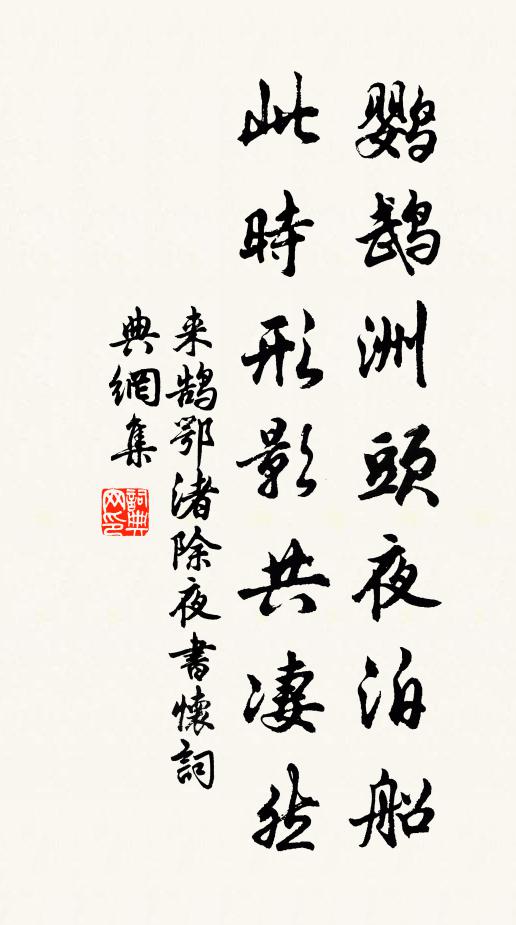 鹦鹉洲頭夜泊船
此時形影共凄然
来鹄鄂渚除夜書懷詞
典網集
詞典
网印